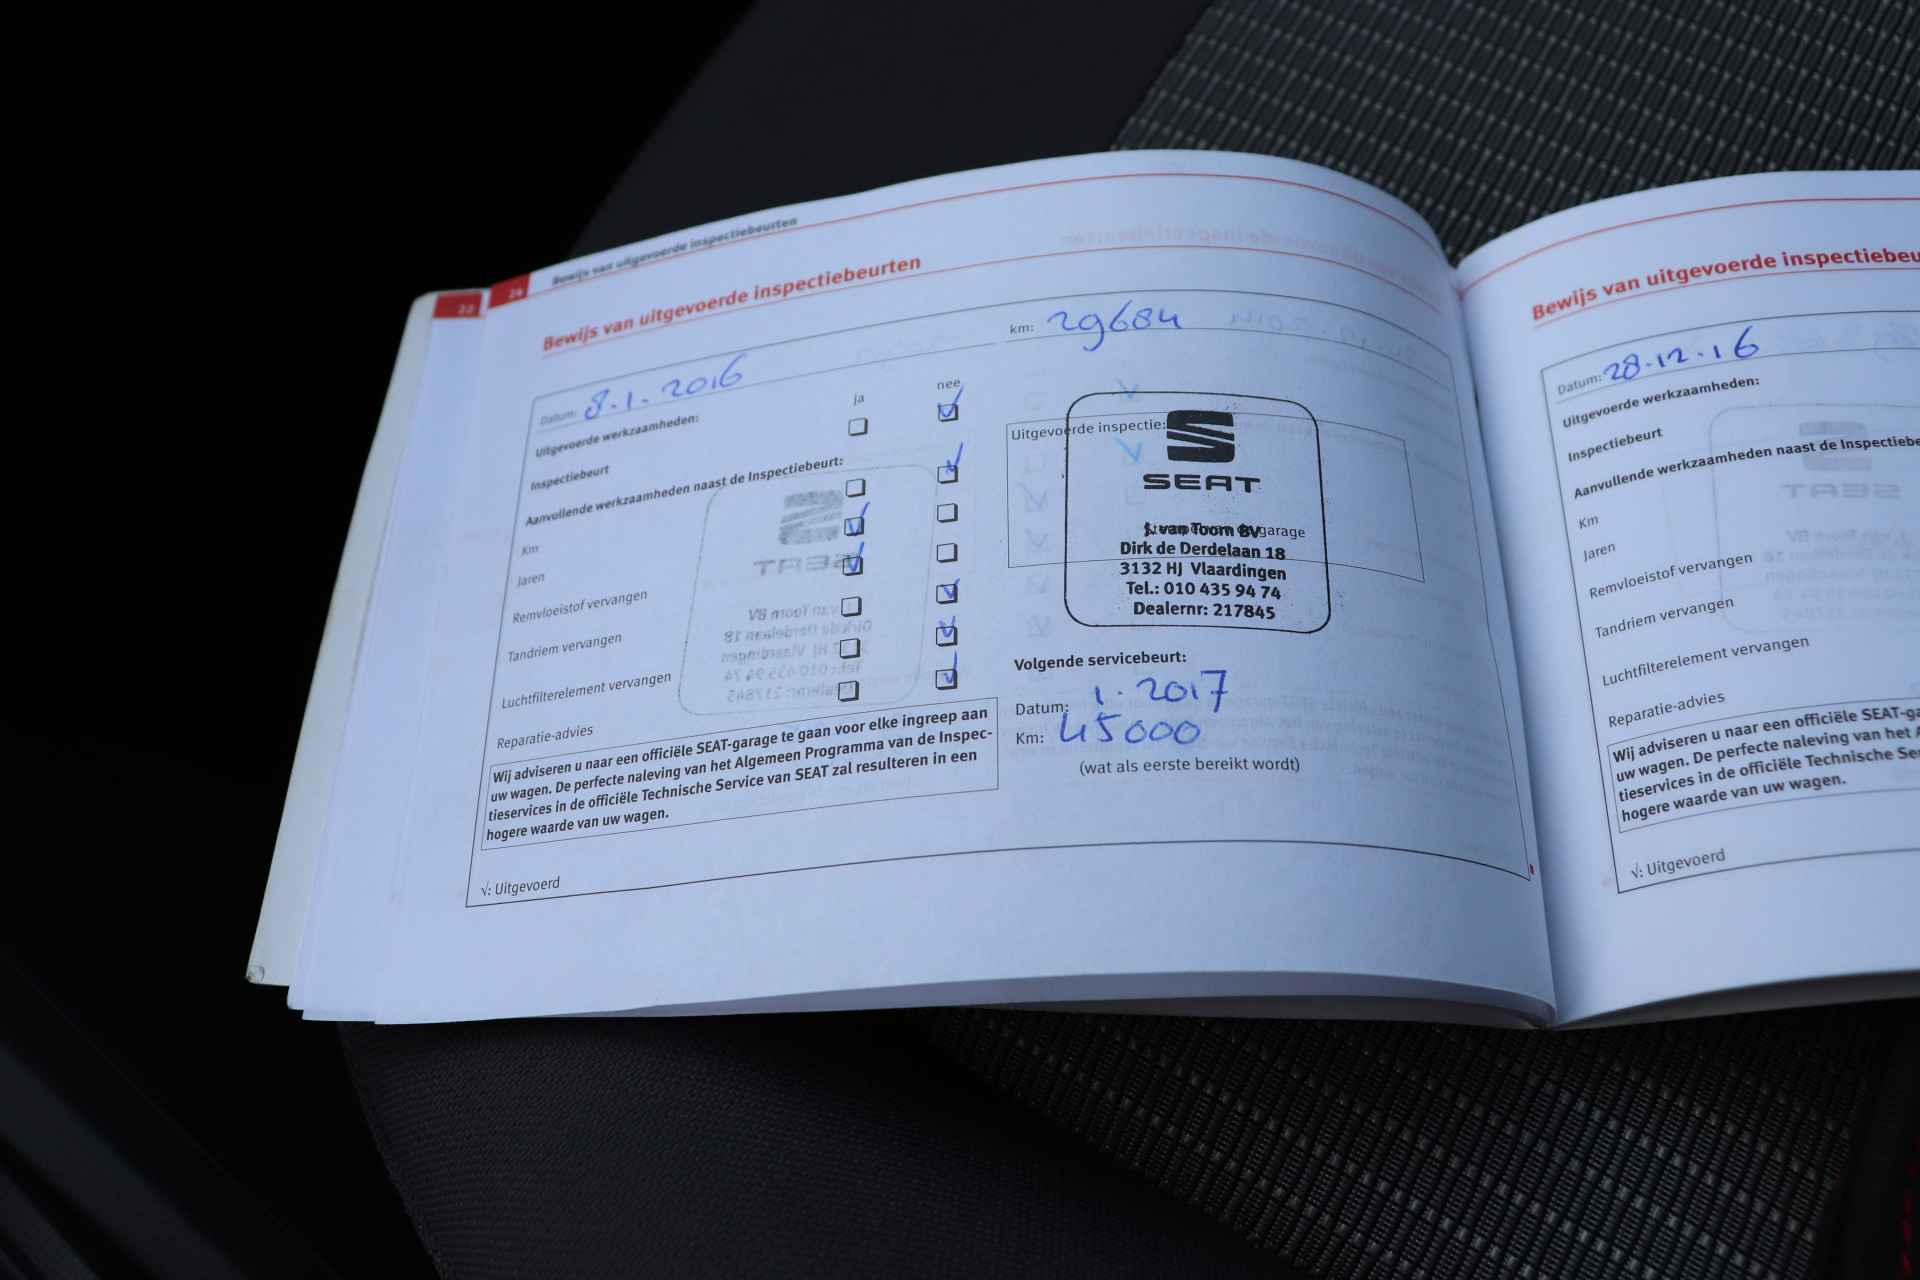 22
24
Bewijs van uitgevoerde inspectiebeurten
Bewijs van uitgevoerde inspectiebeurten
Datum: 8.1.2016
km: 29684
Uitgevoerde werkzaamheden:
ja
nee
Inspectiebeurt
Aanvullende werkzaamheden naast de Inspectiebeurt:
Km
Jaren
Remvloeistof vervangen
Tandriem vervangen
Luchtfilterelement vervangen
Reparatie-advies
Wij adviseren u naar een officiële SEAT-garage te gaan voor elke ingreep aan
uw wagen. De perfecte naleving van het Algemeen Programma van de Inspec-
tieservices in de officiële Technische Service van SEAT zal resulteren in een
hogere waarde van uw wagen.
√: Uitgevoerd
Uitgevoerde inspectie:
SEAT
J. van Toorn BV
garage
Dirk de Derdelaan 18
3132 HJ Vlaardingen
Tel.: 010 435 94 74
Dealernr: 217845
Volgende servicebeurt:
Datum: 1.2017
Km: 45000
(wat als eerste bereikt wordt)
Bewijs van uitgevoerde inspectiebeu
Datum: 28.12.16
Uitgevoerde werkzaamheden:
Inspectiebeurt
Aanvullende werkzaamheden naast de Inspectiebe
Km
Jaren
Remvloeistof vervangen
Tandriem vervangen
Luchtfilterelement vervangen
Reparatie-advies
Wij adviseren u naar een officiële SEAT-ga
uw wagen. De perfecte naleving van het A
tieservices in de officiële Technische Se
hogere waarde van uw wagen.
√: Uitgevoerd